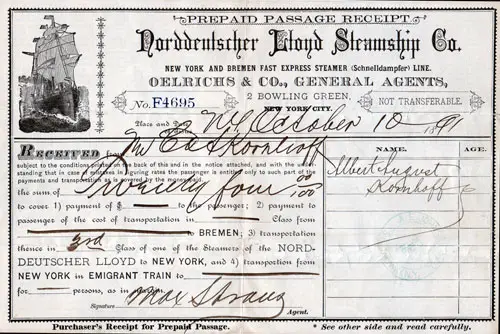 PREPAID PASSAGE RECEIPT.
Norddeutscher Lloyd Steamship Co.
NEW YORK AND BREMEN FAST EXPRESS STEAMER (Schnelldampfer) LINE.
OELRICHS & CO., GENERAL AGENTS,
2 BOWLING GREEN,
No. F4695
NEW YORK CITY.
NOT TRANSFERABLE.
Place and Date NY October 10 1891
RECEIVED Ed Kornhoff
NAME. AGE.
subject to the conditions printed on the back of this and in the notice attached, and with the under-
standing that in case of mistakes in figuring rates the passenger is entitled only to such part of the
payments and transportation as is covered by the money paid.
Albert August
Kornhoff
the sum of Twenty four 00/100
to cover 1) payment of $ to the passenger; 2) payment to
passenger of the cost of transportation in Class from
to BREMEN; 3) transportation
thence in 3rd Class of one of the Steamers of the NORD-
DEUTSCHER LLOYD to NEW YORK, and 4) transportation from
NEW YORK in EMIGRANT TRAIN to
for persons, as per
Signature Max Straus Agent.
Purchaser's Receipt for Prepaid Passage.
* See other side and read carefully.